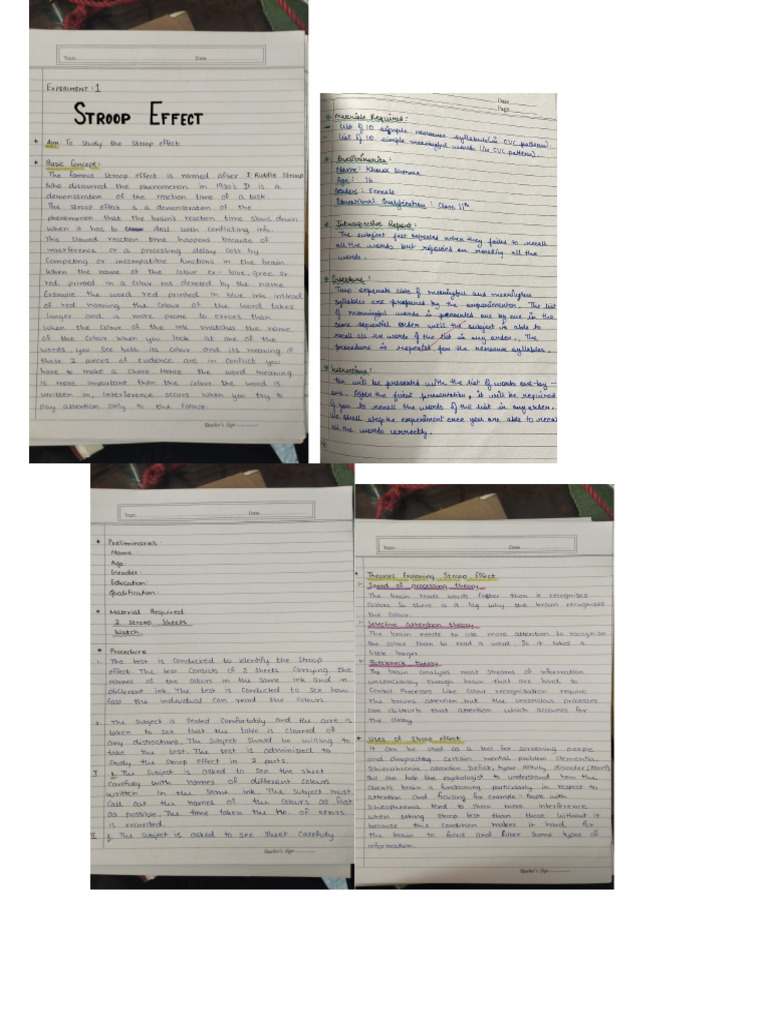 Topic Date
EXPERIMENT : 1
STROOP EFFECT
Aim: To study the stroop effect
Basic Concept:
The famous stroop effect is named after J Riddle Stroop
who discovered the phenomenon in 1930's It is a
demonstration of the reaction time of a task.
The stroop effect is a demonstration of the
phenomenon that the brain's reaction time slows down
when it has to deal with conflicting info.
This slowed reaction time happens because of
interference or a processing delay cost by
Competing or incompatible functions in the brain.
When the name of the colour ex- blue, gree or
red printed in a colour not denoted by the name
Example the word red printed in blue ink instead
of red naming the colour of the word takes
longer and is more prone to errors than
when the colour of the ink matches the name
of the colour. When you look at one of the
words, you see both its colour and its meaning If
these 2 pieces of evidence are in conflict you
have to make a choice. Hence the word meaning
is more important than the colour the word is
written in, interference occurs when you try to
pay attention only to the colour.
Teacher's Sign
Date
Page
Materials Required:
- List of 10 simple nonsense syllables (in CVC pattern).
- List of 10 simple meaningful words (in CVC pattern).
Preliminaries :
Name :
Age : 16
Gender : Female
Educational Qualification : Class 11th
Introspective Report :
The subject felt repeated when they failed to recall
all the words but rejoiced on recalling all the
words.
Procedure :
Two separate lists of meaningful and meaningless
syllables are prepared by the experimenter. The list
of meaningful words is presented one by one in the
same sequential order until the subject is able to
recall all the words of the list in any order. The
procedure is repeated for the nonsense syllables.
Instructions :
You will be presented with the list of words one-by-
one. After the first presentation, it will be required
of you to recall the words of the list in any order.
We shall stop the experiment once you are able to recall
all the words correctly.
Topic Date
Preliminaries:
Name
Age
Gender
Education
Qualification
Material Required
2 Stroop Sheets
Watch
Procedure
1. The test is conducted to identify the Stroop
effect. The test consists of 2 sheets carrying the
names of the colours in the same ink and in
different ink. The test is conducted to see how
fast the individual can read the colours.
2. The subject is seated comfortably and the care is
taken to see that the table is cleared of
any distractions. The subject should be willing to
take the test. The test is administed to
study the stroop effect in 2 parts.
I 1. The subject is asked to see the sheet
carefuly with names of different colours
written in the same ink. The subject must
call out the names of the colours as fast
as possible. The time taken the no. of errors
is recorded.
II 1. The subject is asked to see sheet carefully
Teacher's Sign
Topic Date
Theories Explaining Stroop Effect
Speed of processing theory
The brain reads words faster than it recognises
colours. So there is a lag why the brain recognises
the colour.
Selective attention theory
The brain needs to use more attention to recognise
the colour than to read a word. So it takes a
little longer.
Bottleneck theory
The brain analysis most streams of information
unconsciously through brain that are hard to
Control Processes like colour recognisation require
the brains attention but the unconcious processes
can disturb that attention which accounts for
the delay
Uses of Stroop effect
It can be used as a tool for screening people
and diagnosing certain mental problem dementia,
Schizophrenia, attention deficit, hyper activity disorder (ADHD)
this can help the psycologist to understand how the
clients brain is functioning, particularly in respect to
attention and focusing for example: People with
Schizophrenia tend to show more interference
when taking stroop test than those without it
because this condition makes it hard for
the brain to focus and filter some types of
information.
Teacher's Sign